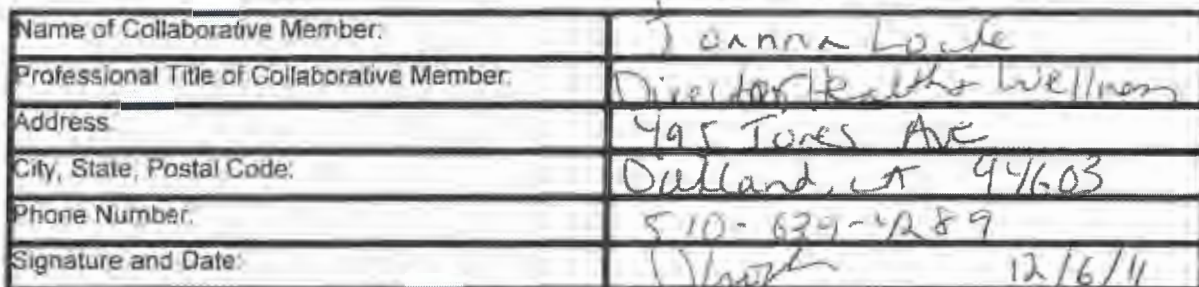 Name of Collaborative Member: Joanna Locke
Professional Title of Collaborative Member: Director Health + Wellness
Address: 495 Jones Ave
City, State, Postal Code: Oakland, CA 94603
Phone Number: 510-639-4289
Signature and Date: 12/6/11